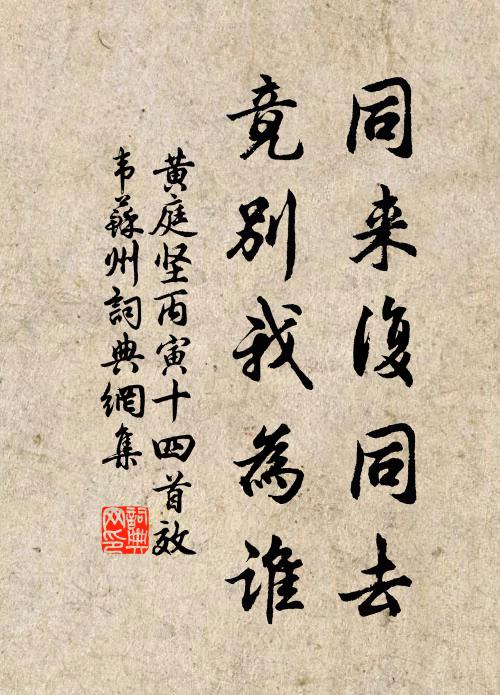 同来復同去
竟别我為誰
黄庭坚丙寅十四首效
韦蘇州詞典網集
詞典网印